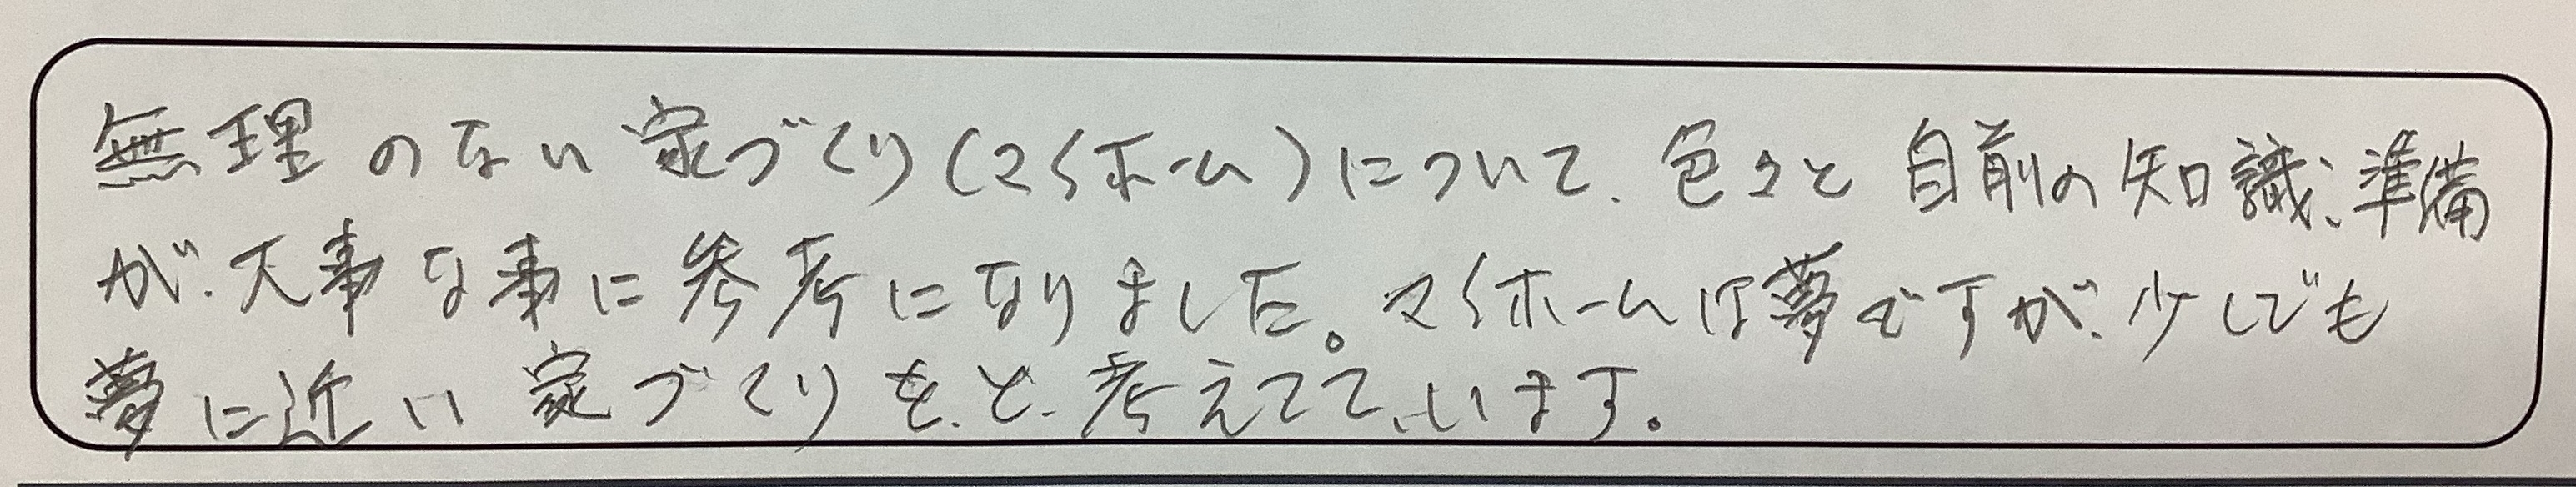 無理のない家づくり(マイホーム)について、色々と自前の知識、準備
が、大事な事に参考になりました。マイホームは夢ですが、少しでも
夢に近い家づくりを、と、考えてて、います。